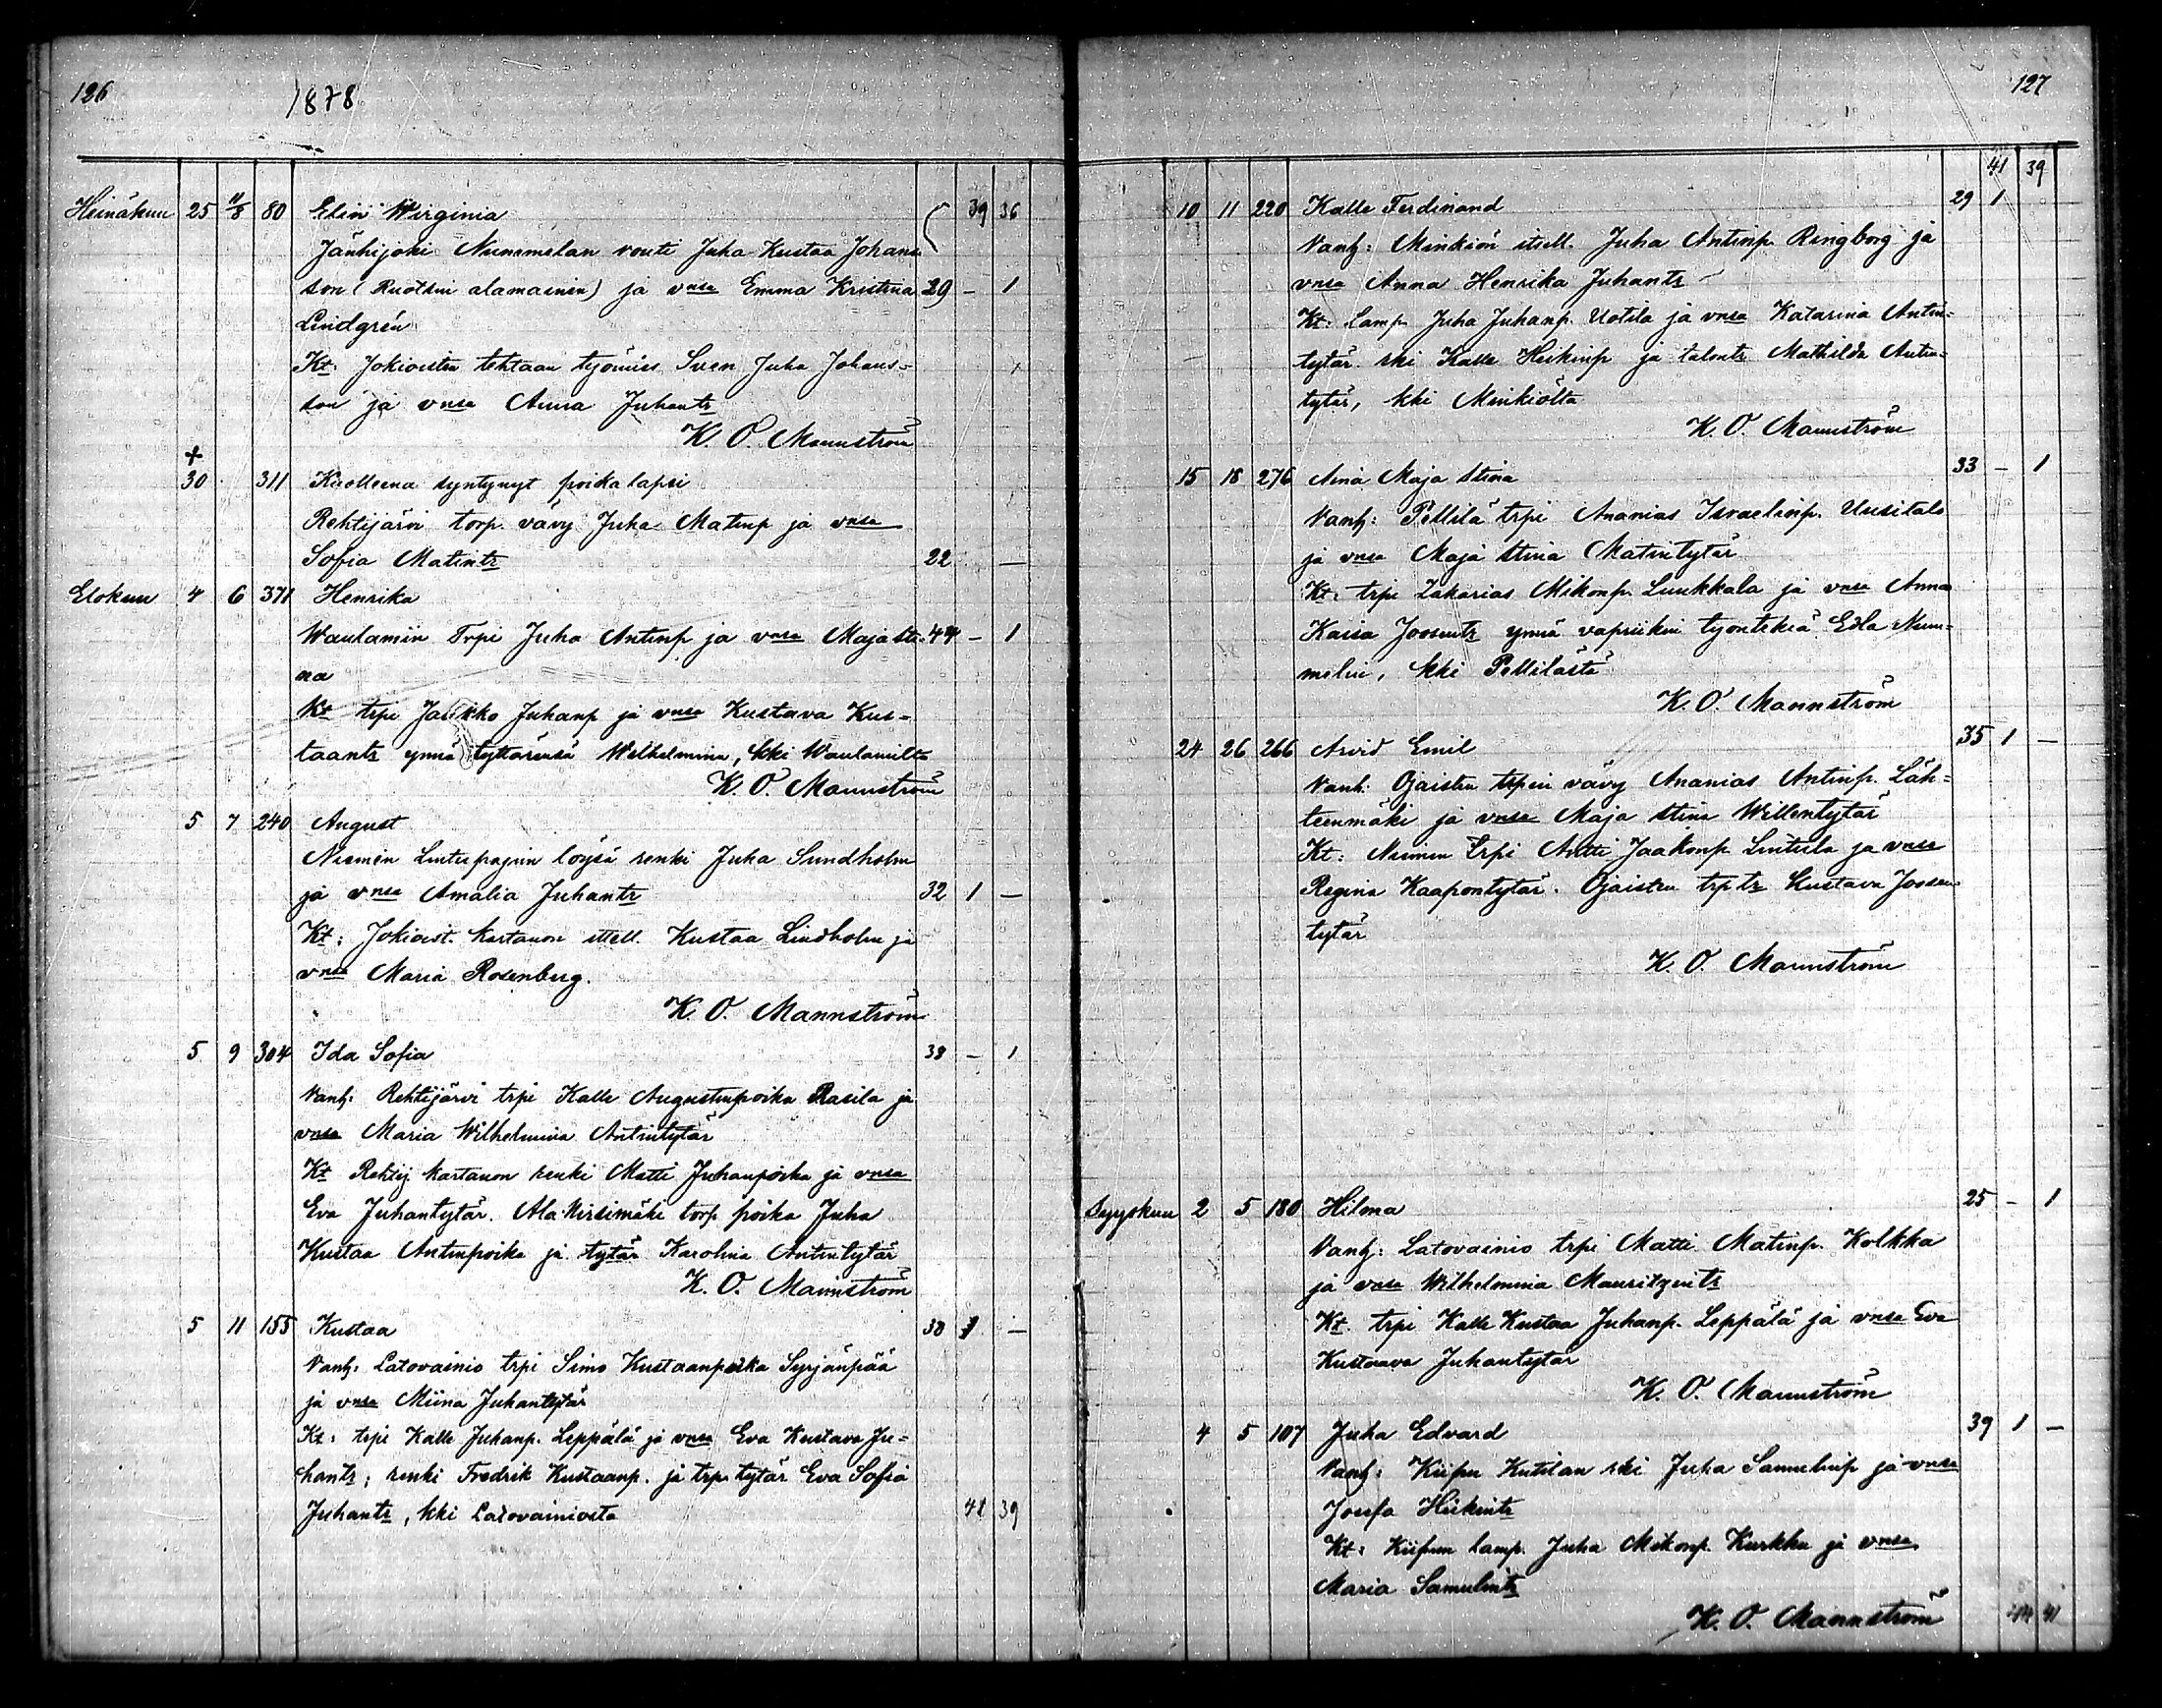 126
1878
39 36
Heinäkuu 25 11/8 80 Elin Wirginia
Jänhijoki Nummelan vouti Juha Kustaa Johans
son (Ruotsin alamainen) ja vnsa Emma Kristina 29 – 1
Lindgrén
Kt: Jokioisten tehtaan työmies Sven Juha Johans-
son ja vnsa Anna Juhantr
K. O. Mannström
+
30 311 Kuolleena syntynyt poikalapsi
Rehtijärvi torp. vävy Juha Matinp ja vnsa
Sofia Matintr 22 —
Elokuu 4 6 371 Henrika
Waulamiin Trpi Juha Antinp ja vnsa Maja Sti- 44 – 1
na
Kt trpi Jaakko Juhanp ja vnsa Kustava Kus-
taantr ynnä tyttärensä Wilhelmina, kki Waulamilta
K. O. Mannström
5 7 240 August
Niemen Lintupajun löysä renki Juha Sundholm
ja vnsa Amalia Juhantr 32 1 —
Kt: Jokioist. kartanon itsell. Kustaa Lindholm ja
vnsa Maria Rosenberg.
K. O. Mannström
5 9 304 Ida Sofia 38 – 1
Vanh: Rehtijärvi trpi Kalle Augustinpoika Rasila ja
vnsa Maria Wilhelmina Antintytär
Kt Rehtij kartanon renki Matti Juhanpoika ja vnsa
Eva Juhantytär. Ala-Kirsimäki torp poika Juha
Kustaa Antinpoika ja tytär Karolina Antintytär
K. O. Mannström
5 11 155 Kustaa 38 1 —
Vanh: Latovainio trpi Simo Kustaanpoika Syrjänpää
ja vnsa Miina Juhantytär
Kt: trpi Kalle Juhanp. Leppälä ja vnsa Eva Kustava Ju-
hantr; renki Fredrik Kustaanp. ja trpn tytär Eva Sofia
Juhantr, kki Latovainiosta 41 39
127
41 39
10 11 220 Kalle Ferdinand 29 1
Vanh: Minkiön itsell. Juha Antinp. Ringborg ja
vnsa Anna Henrika Juhantr
Kt: lamp Juha Juhanp. Uotila ja vnsa Katarina Antin-
tytär. rki Kalle Heikinp ja talontr Mathilda Antin-
tytär, kki Minkiöltä
K. O. Mannström
15 18 276 Aina Maja Stina 33 – 1
Vanh: Pellilä trpi Ananias Israelinp. Uusitalo
ja vnsa Maja Stina Matintytär
Kt: trpi Zakarias Mikonp. Luukkala ja vnsa Anna
Kaisa Joosuntr ynnä vapriikin työntekiä Edla Num-
melin, kki Pellilästä
K. O. Mannström
24 26 266 Arvid Emil 35 1 —
Vanh: Ojaisten trpin vävy Ananias Antinp. Läh-
teenmäki ja vnsa Maja Stina Willentytär
Kt: Niemen Trpi Antti Jaakonp. Lintula ja vnsa
Regina Kaapontytär. Ojaisten trp tr Kustava Joosun-
tytär
K. O. Mannström
Syyskuu 2 5 180 Hilma 25 – 1
Vanh: Latovainio trpi Matti Matinp. Kolkka
ja vnsa Wilhelmina Mauritzintr
Kt. trpi Kalle Kustaa Juhanp. Leppälä ja vnsa Eva
Kustaava Juhantytär
K. O. Mannström
4 5 107 Juha Edvard 39 1 —
Vanh: Kiipun Kutilan rki Juha Samulinp ja vnsa
Josefa Heikintr
Kt: Kiipun lamp. Juha Mikonp. Kurkku ja vnsa
Maria Samulintr
K. O. Mannström 44 41